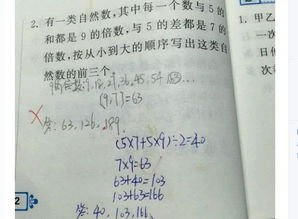 2. 有一类自然数,其中每一个数与 5 的
和都是 9 的倍数,与 5 的差都是 7 的
倍数,按从小到大的顺序写出这类自
然数的前三个.
9的倍数:9,18,27,36,45,54,63…
(9,7)=63
答:63,126,189.
(5×7+5×9)÷2=40
7×9=63
63+40=103
103+63=166
答:40,103,166
1. 甲乙
一次
日他
次
2